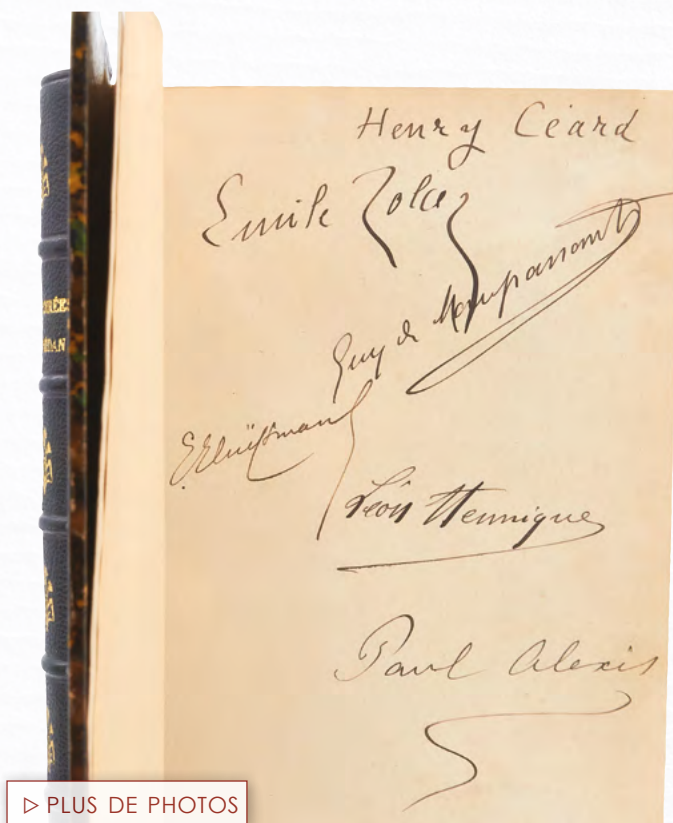 Henry Céard
Emile Zola
Guy de Maupassant
J.K. Huÿsmans
Léon Hennique
Paul Alexis
▷ PLUS DE PHOTOS